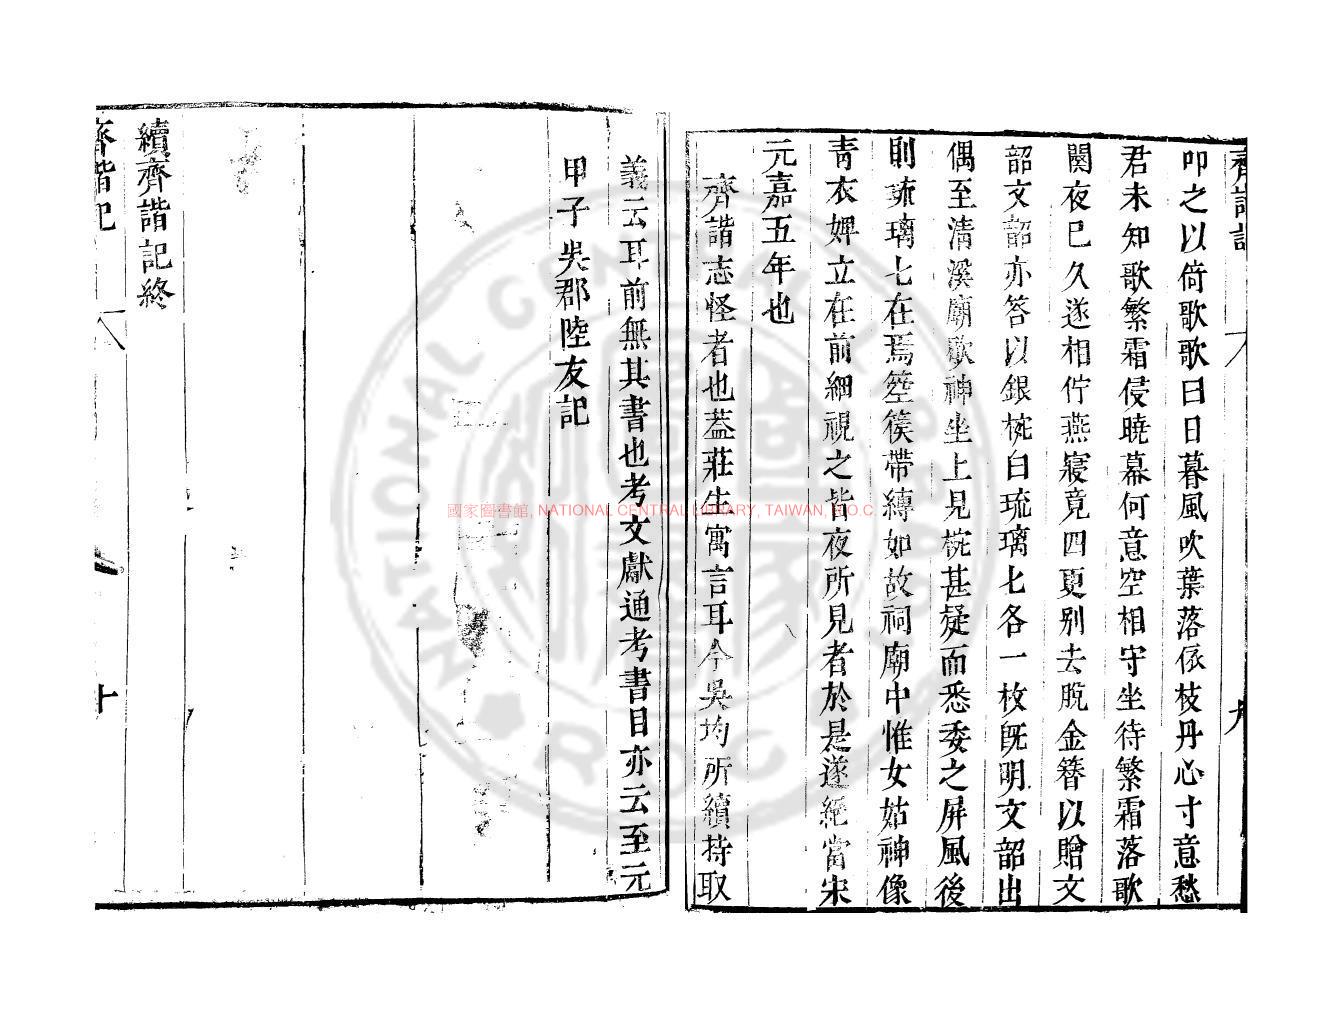 齊諧記 九
叩之以倚歌歌曰日暮風吹葉落依枝丹心寸意愁
君未知歌繁霜侵曉幕何意空相守坐待繁霜落歌
闋夜已久遂相佇燕寢竟四更别去脫金簪以贈文
韶文韶亦答以銀椀白琉璃匕各一枚旣明文韶出
偶至清溪廟歇神坐上見椀甚疑而悉委之屏風後
則琉璃匕在焉箜篌帶縛如故祠廟中惟女姑神像
靑衣婢立在前細視之皆夜所見者於是遂絕當宋
元嘉五年也
齊諧志怪者也葢莊生寓言耳今吳均所續持取
義云耳前無其書也考文獻通考書目亦云至元
甲子吳郡陸友記
續齊諧記終
齊諧記 十
國家圖書館, NATIONAL CENTRAL LIBRARY, TAIWAN, R.O.C.
NATIONAL CENTRAL LIBRARY
ROC